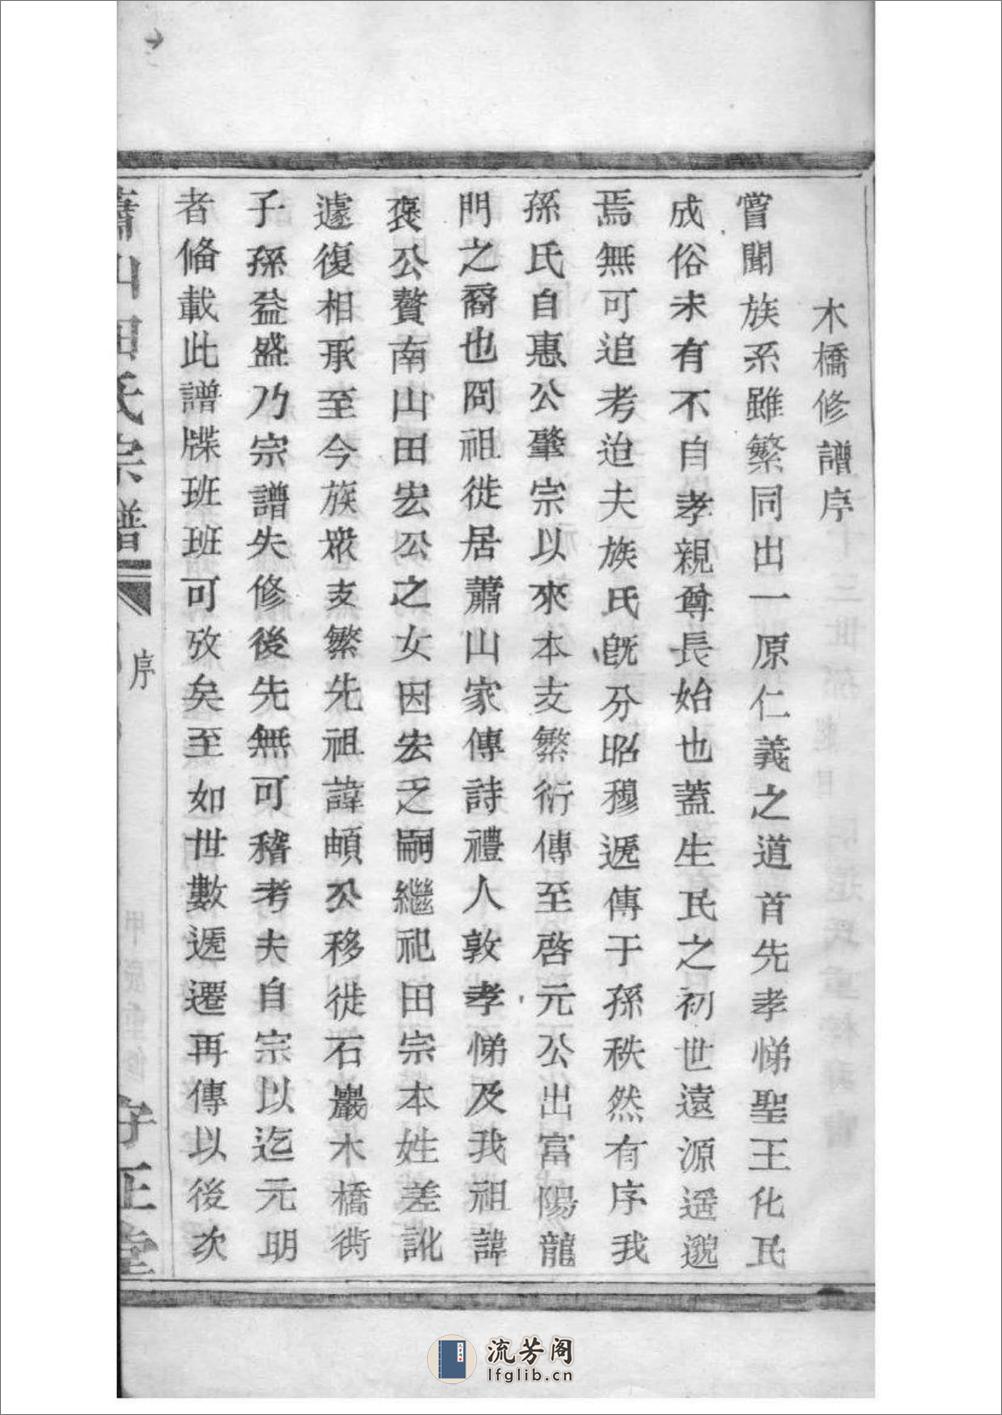 木橋修譜序
嘗聞族系雖繁同出一原仁義之道首先孝悌聖王化民
成俗未有不自孝親尊長始也蓋生民之初世遠源遥邈
焉無可追考迨夫族氏旣分昭穆遞傳于孫秩然有序我
孫氏自惠公肇宗以來本支繁衍傳至啓元公出富陽龍
門之裔也冏祖徙居蕭山家傳詩禮人敦孝悌及我祖諱
褒公贅南山田宏公之女因宏乏嗣繼祀田宗本姓差訛
遽復相承至今族衆支繁先祖諱頔公移徙石巖木橋衖
子孫益盛乃宗譜失修後先無可稽考夫自宗以迄元明
者偹載此譜牒班班可攷矣至如世數遞遷再傳以後次
蕭山田氏宗譜
序
守正堂
流芳阁
lfglib.cn